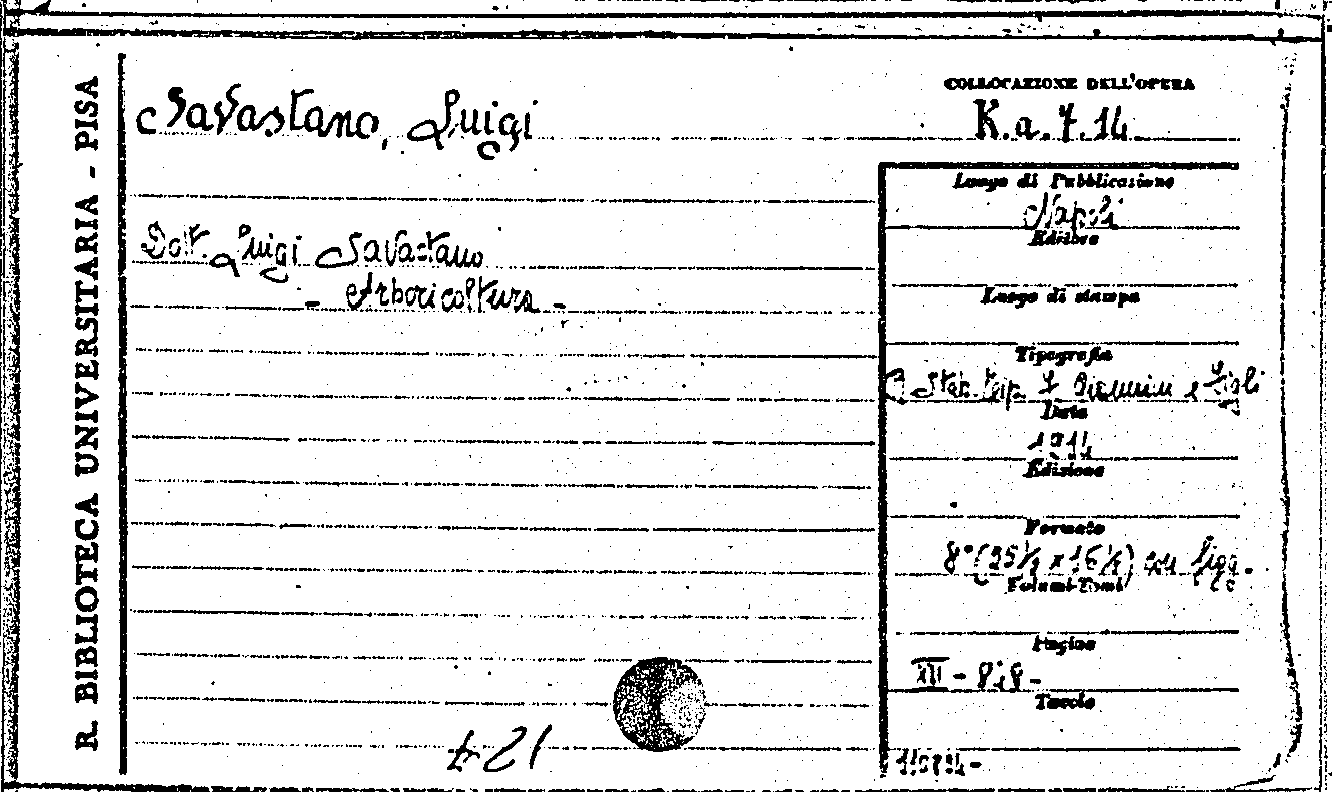 R. BIBLIOTECA UNIVERSITARIA - PISA
Savastano, Luigi
COLLOCAZIONE DELL'OPERA
K.a.7.14.
Dott. Luigi Savastano
- Arboricoltura -
Luogo di Pubblicazione
Napoli
Editore
Luogo di stampa
Tipografia
Stab. tip. F. Giannini e Figli
Data
1914
Edizione
Formato
8° (25½ x 16½) con figg.
Volumi-Tomi
Pagine
XII -
Tavole